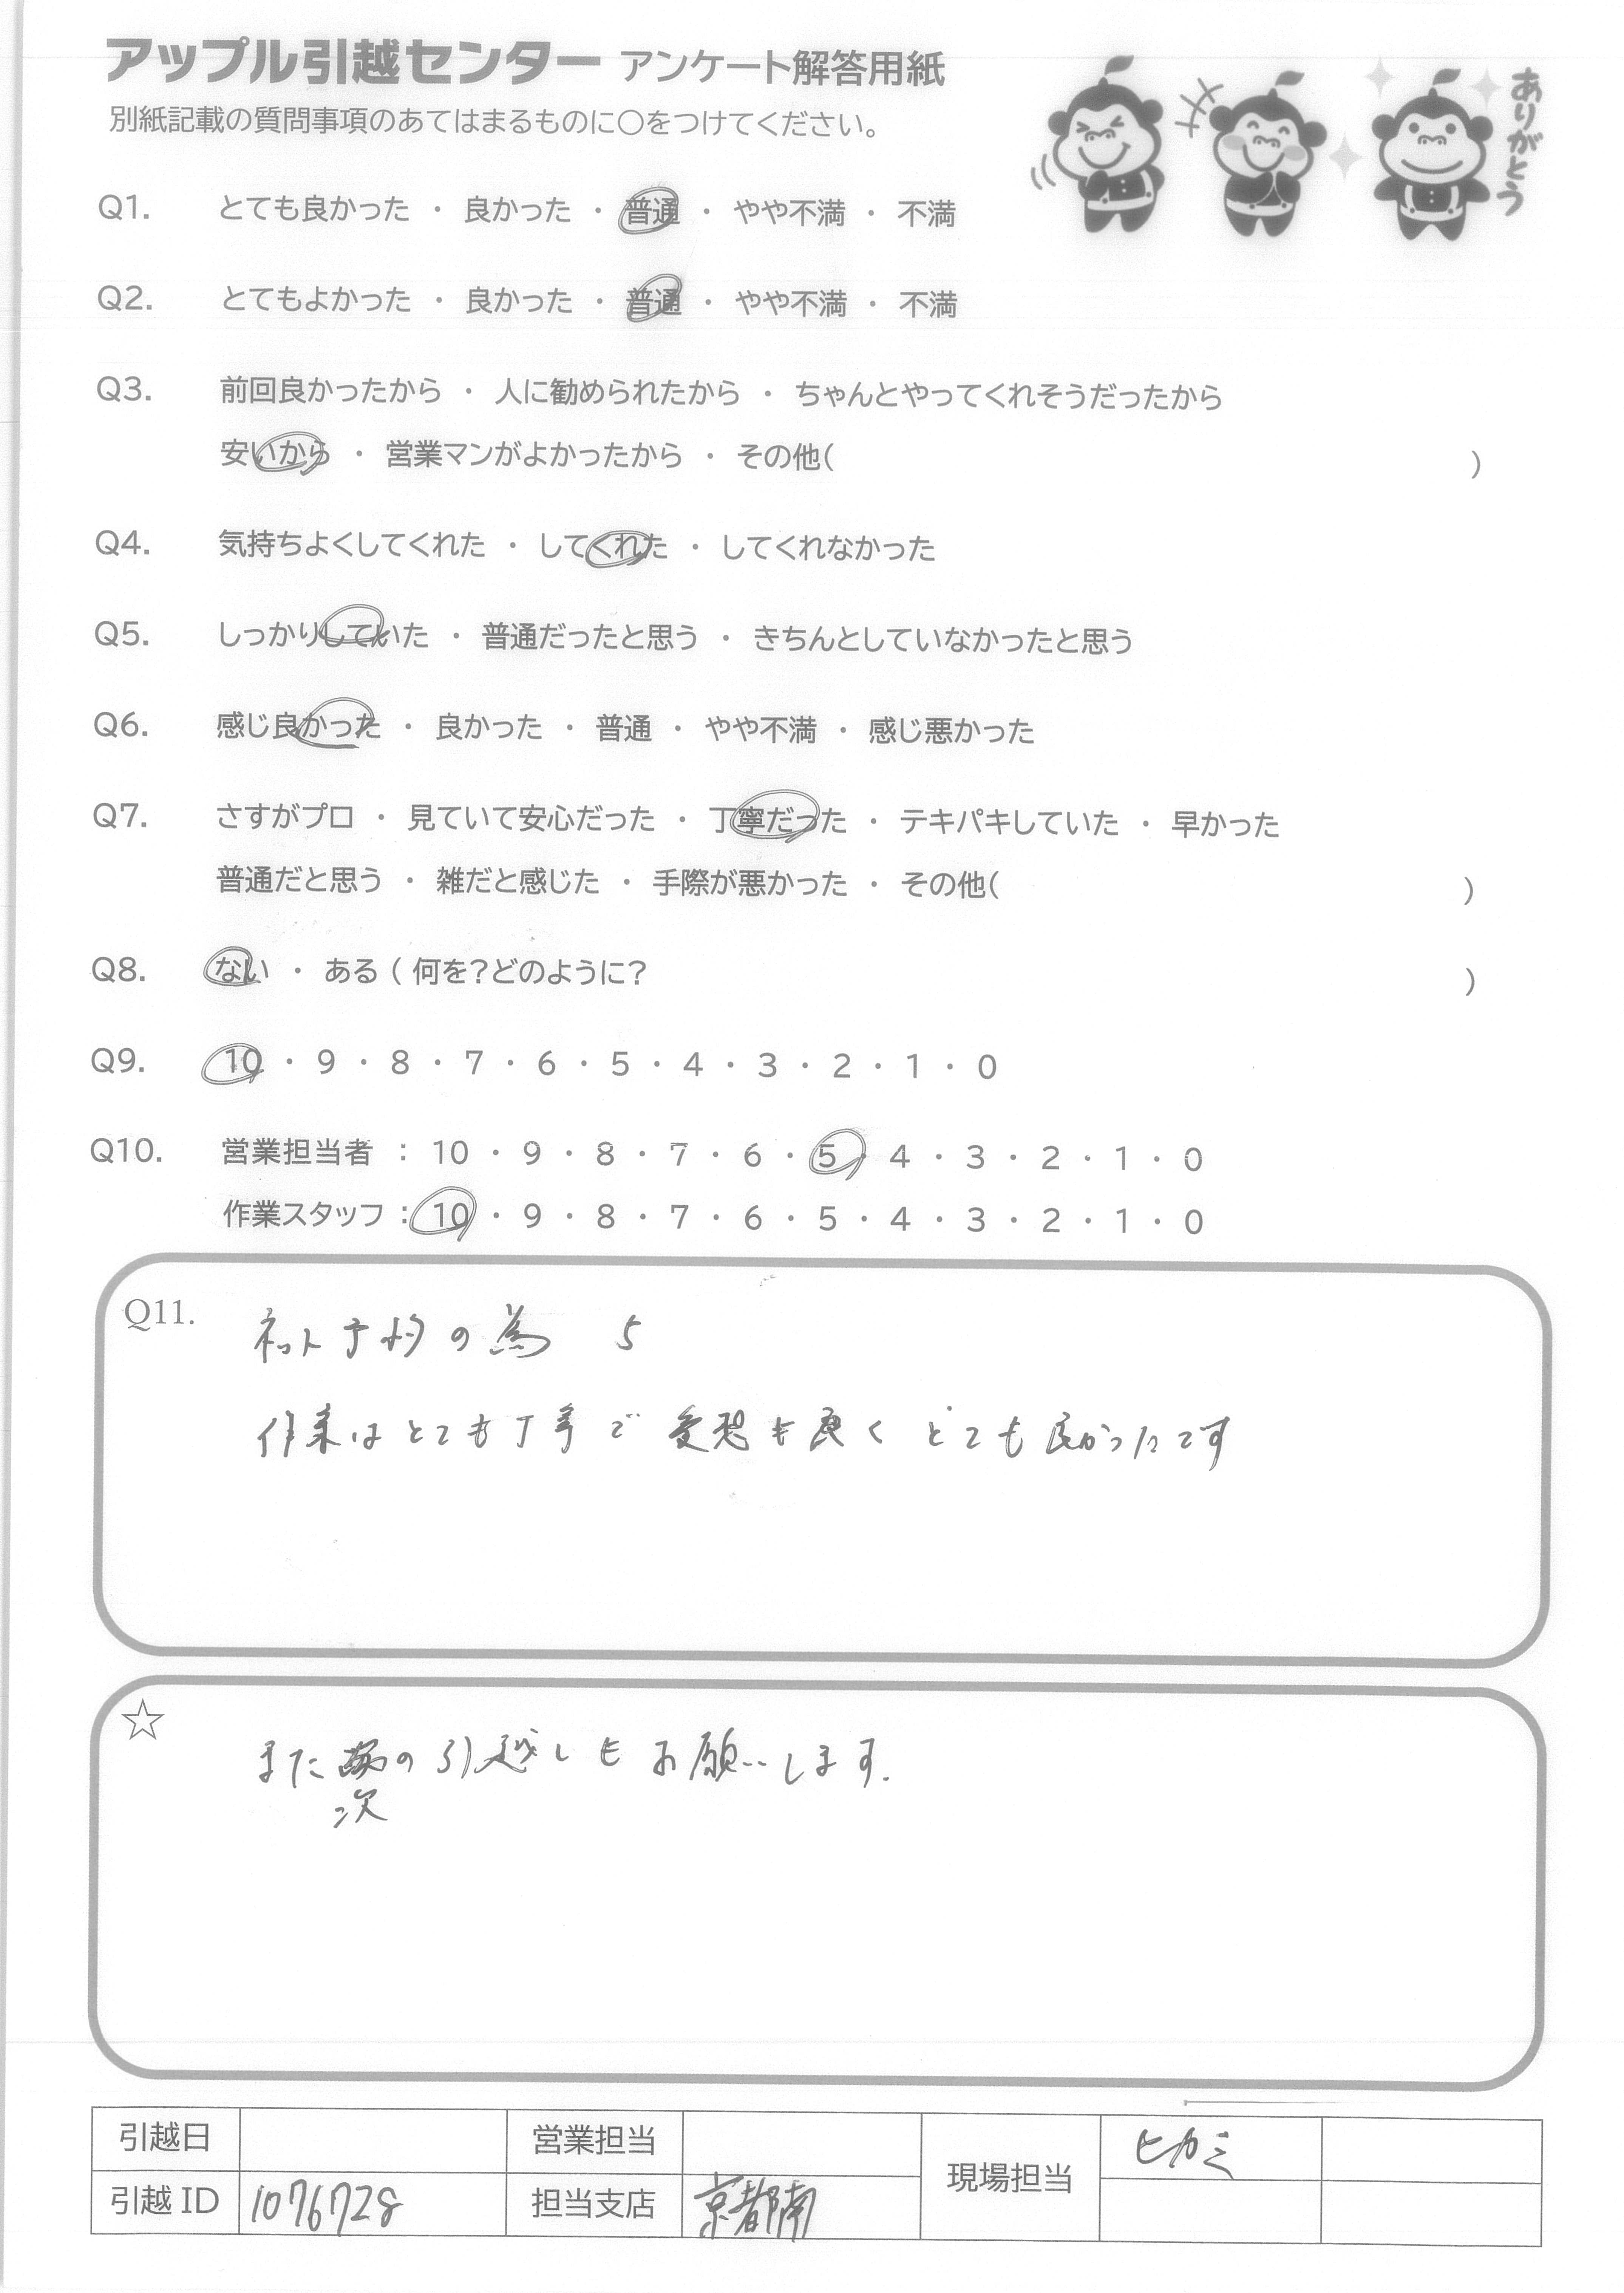 アップル引越センター アンケート解答用紙
別紙記載の質問事項のあてはまるものに○をつけてください。
ありがとう
Q1. とても良かった ・ 良かった ・ 普通 ・ やや不満 ・ 不満
Q2. とてもよかった ・ 良かった ・ 普通 ・ やや不満 ・ 不満
Q3. 前回良かったから ・ 人に勧められたから ・ ちゃんとやってくれそうだったから
安いから ・ 営業マンがよかったから ・ その他( )
Q4. 気持ちよくしてくれた ・ してくれた ・ してくれなかった
Q5. しっかりしていた ・ 普通だったと思う ・ きちんとしていなかったと思う
Q6. 感じ良かった ・ 良かった ・ 普通 ・ やや不満 ・ 感じ悪かった
Q7. さすがプロ ・ 見ていて安心だった ・ 丁寧だった ・ テキパキしていた ・ 早かった
普通だと思う ・ 雑だと感じた ・ 手際が悪かった ・ その他( )
Q8. ない ・ ある ( 何を?どのように? )
Q9. 10 ・ 9 ・ 8 ・ 7 ・ 6 ・ 5 ・ 4 ・ 3 ・ 2 ・ 1 ・ 0
Q10. 営業担当者 : 10 ・ 9 ・ 8 ・ 7 ・ 6 ・ 5 ・ 4 ・ 3 ・ 2 ・ 1 ・ 0
作業スタッフ : 10 ・ 9 ・ 8 ・ 7 ・ 6 ・ 5 ・ 4 ・ 3 ・ 2 ・ 1 ・ 0
Q11. ネット予約の為 5
作業はとても丁寧で 愛想も良く とても良かったです
☆ また次の引越しもお願いします.
引越日 営業担当 現場担当 ヒカミ
引越 ID 1076728 担当支店 京都南